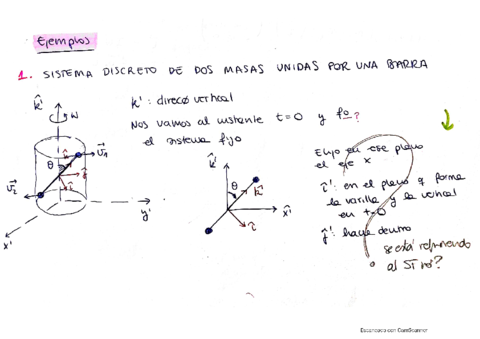 Ejemplos
1. SISTEMA DISCRETO DE DOS MASAS UNIDAS POR UNA BARRA
k̂' : direcc vertical
Nos vamos al instante t=0 y
el sistema fijo
Elijo en ese plano
el eje x
î' : en el plano q forma
la varilla y la vertical
en t=0
ĵ' : hacia dentro
se está refiriendo
al
k̂'
ω
θ
k̂
v⃗1
v⃗2
î
x'
y'
k̂'
θ
k̂
x̂'
î
Escaneado con CamScanner